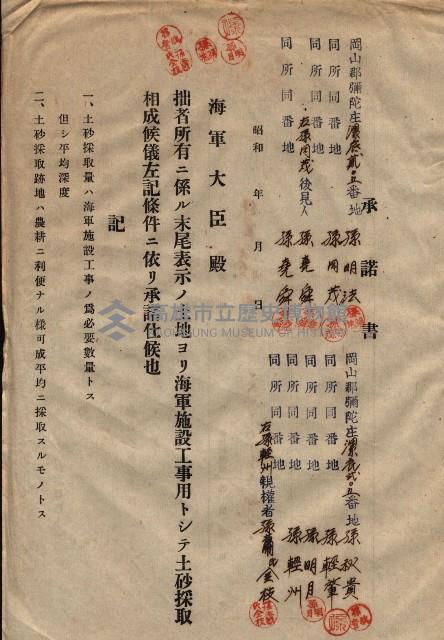 承諾書
岡山郡彌陀庄漯底貳〇五番地 孫明法
同所同番地 孫同茂
同所同番地 孫堯舜
右孫同茂後見人
同所同番地 孫堯舜
岡山郡彌陀庄漯底弍〇五番地 孫叔貴
同所同番地 孫輕肇
同所同番地 孫明月
同所同番地 孫輕州
右孫輕州親權者 孫蕭氏金枝
昭和 年 月 日
海軍大臣殿
拙者所有ニ係ル末尾表示ノ土地ヨリ海軍施設工事用トシテ土砂採取
相成候儀左記條件ニ依リ承諾仕候也
記
一、土砂採取量ハ海軍施設工事ノ爲必要數量トス
但シ平均深度
二、土砂採取跡地ハ農耕ニ利便ナル樣可成平均ニ採取スルモノトス
高雄市立歷史博物館
KAOHSIUNG MUSEUM OF HISTORY